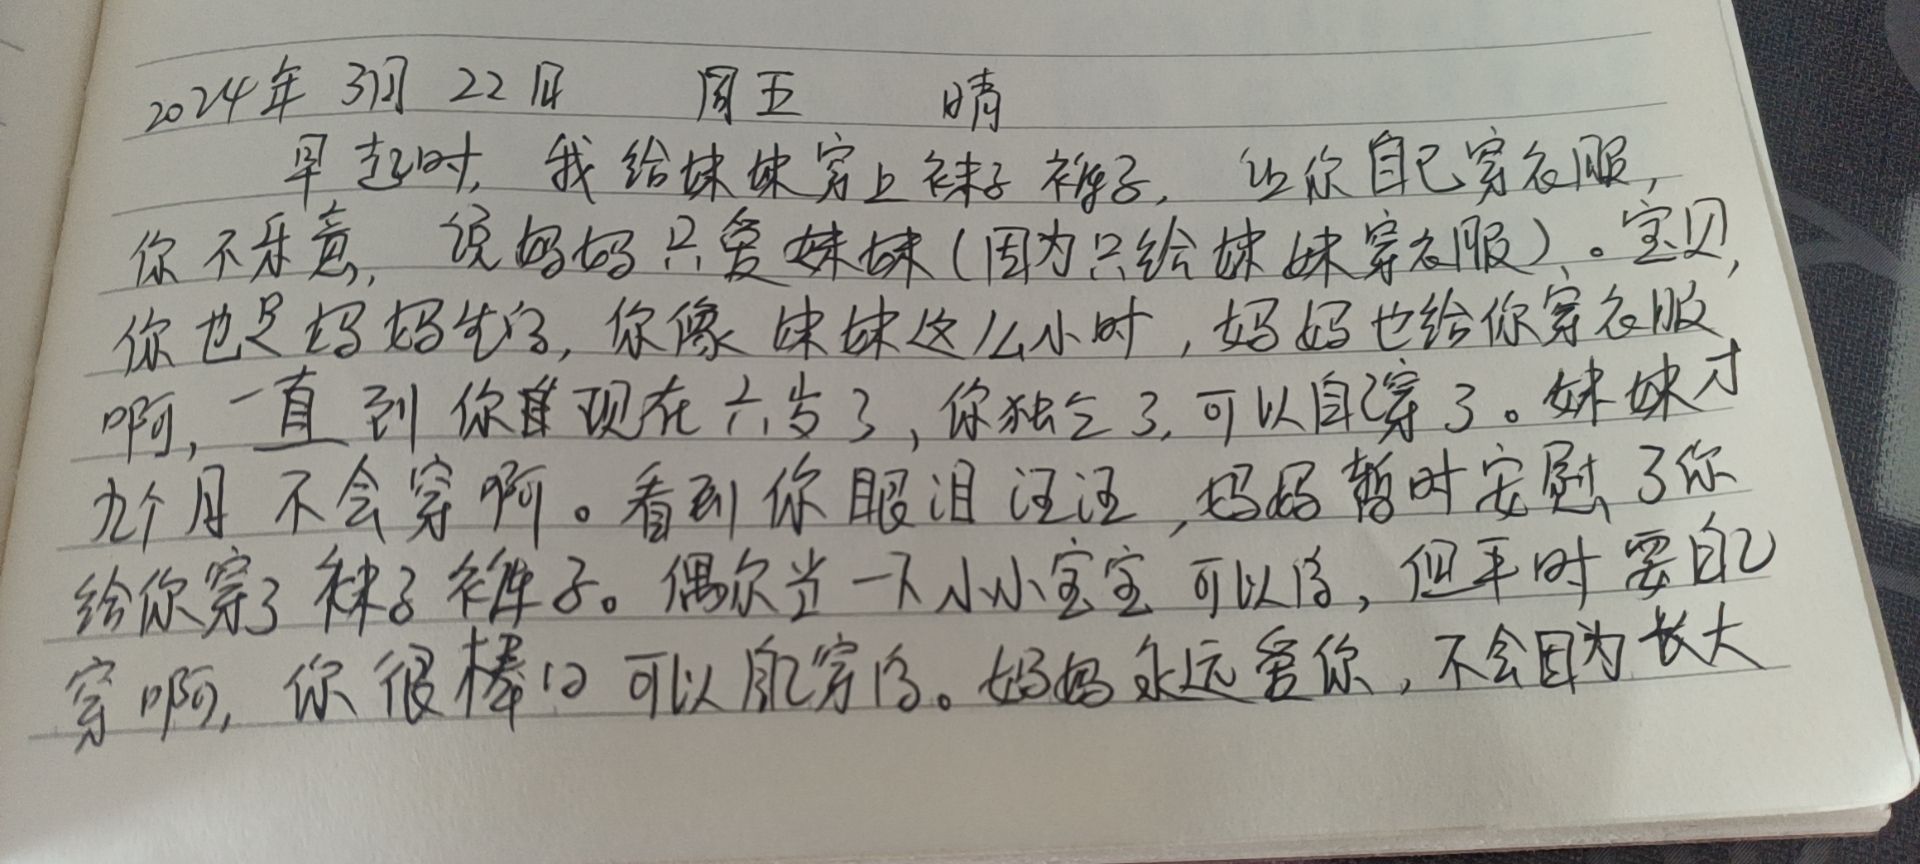 2024年 3月 22日 周五 晴
早起时, 我给妹妹穿上袜子裤子, 让你自己穿衣服,
你不乐意, 说妈妈只爱妹妹(因为只给妹妹穿衣服)。宝贝,
你也是妈妈生的, 你像妹妹这么小时, 妈妈也给你穿衣服
啊, 一直到你 现在六岁了, 你独立了, 可以自己穿了。妹妹才
九个月不会穿啊。看到你眼泪汪汪, 妈妈暂时安慰了你
给你穿了袜子裤子。偶尔当一下小小宝宝可以的, 但平时要自己
穿啊, 你很棒的可以自己穿的。妈妈永远爱你, 不会因为长大